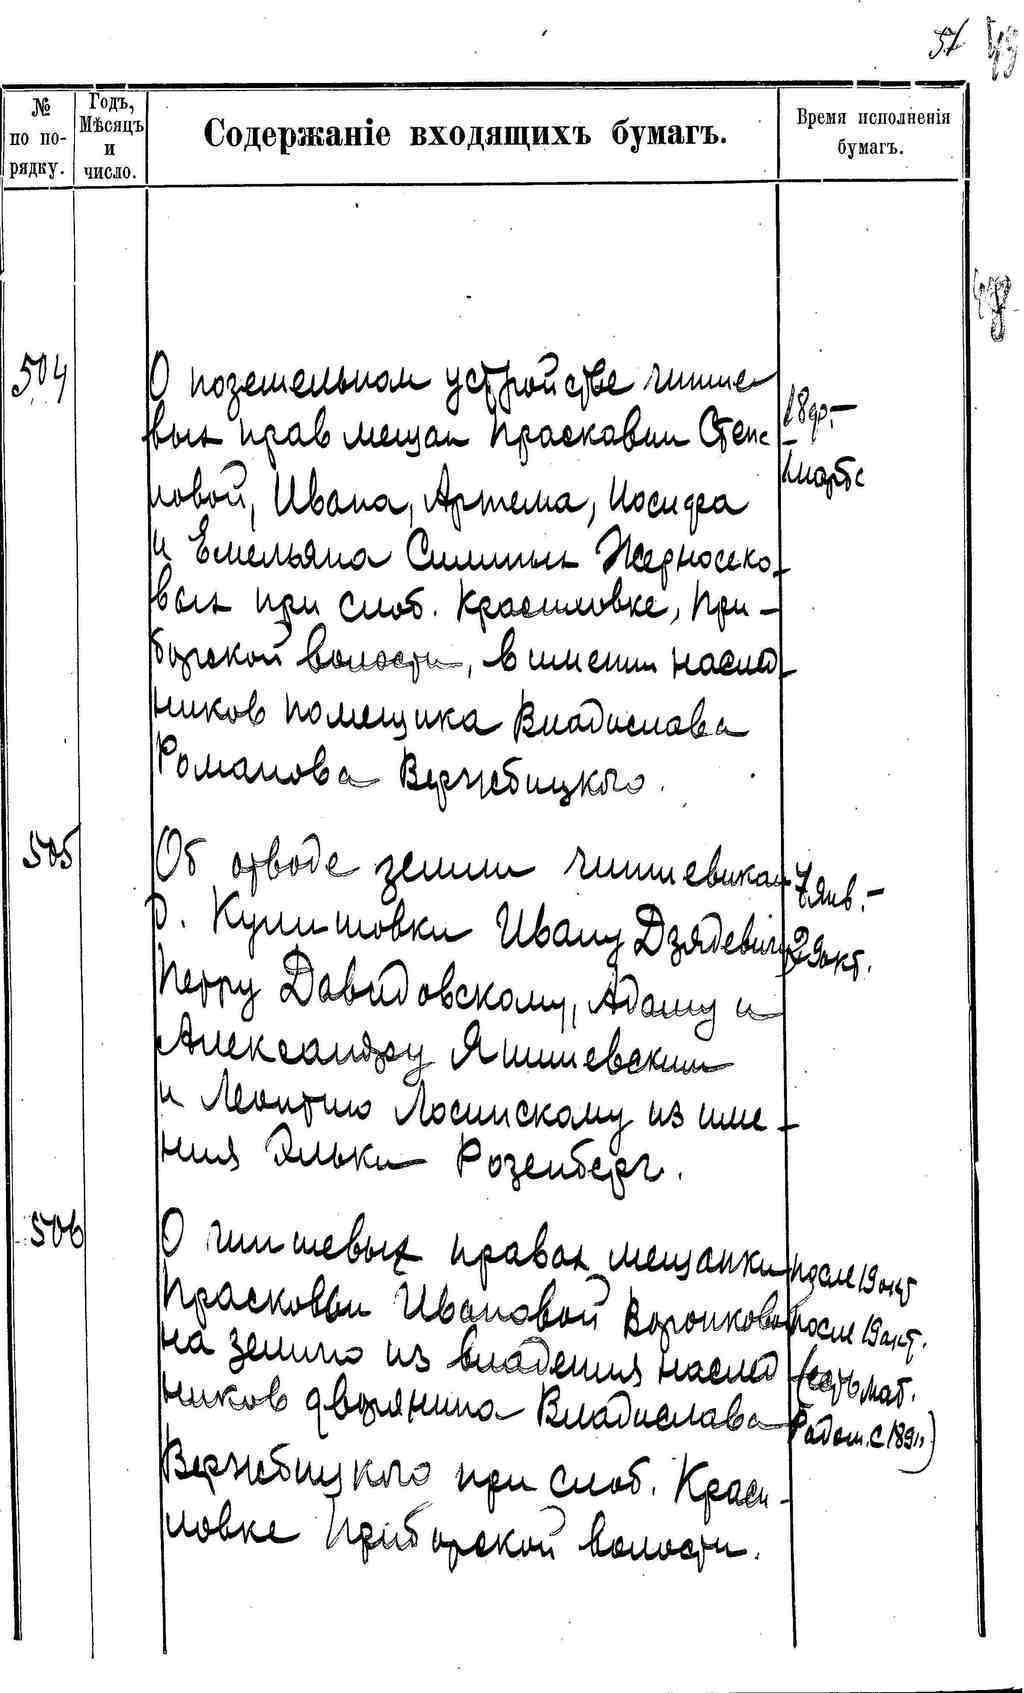 51 49
№ по порядку.
Годъ, Мѣсяцъ и число.
Содержаніе входящихъ бумагъ.
Время исполненія бумагъ.
48
504
О поземельном устройстве чинше-
вых прав мещан Прасковии Степа
новой, Ивана, Артема, Иосифа
и Емельяна Силиных Жерносеко-
вых при слоб. Красиловке, При-
борской волости, в имении наслед-
ников помещика Владислава
Романова Вержбицкого.
18 фр.-
- 1 марта
505
Об отводе земли чиншевикам
д. Кулишовки Ивану Дзядевичу
Петру Давидовскому, Адаму и
Александру Яшиневским
и Леонтию Лосинскому из име-
ния Эльки Розенберг.
7 янв.-
29 окт.
506
О чиншевых правах мещанки
Прасковьи Ивановой Воронковой
на землю из владения наслед
ников дворянина Владислава
Вержбицкого при слоб. Краси-
ловке Приборской волости.
после 19 окт
после 19 окт.
(есть мат.
Радом. с 1891)